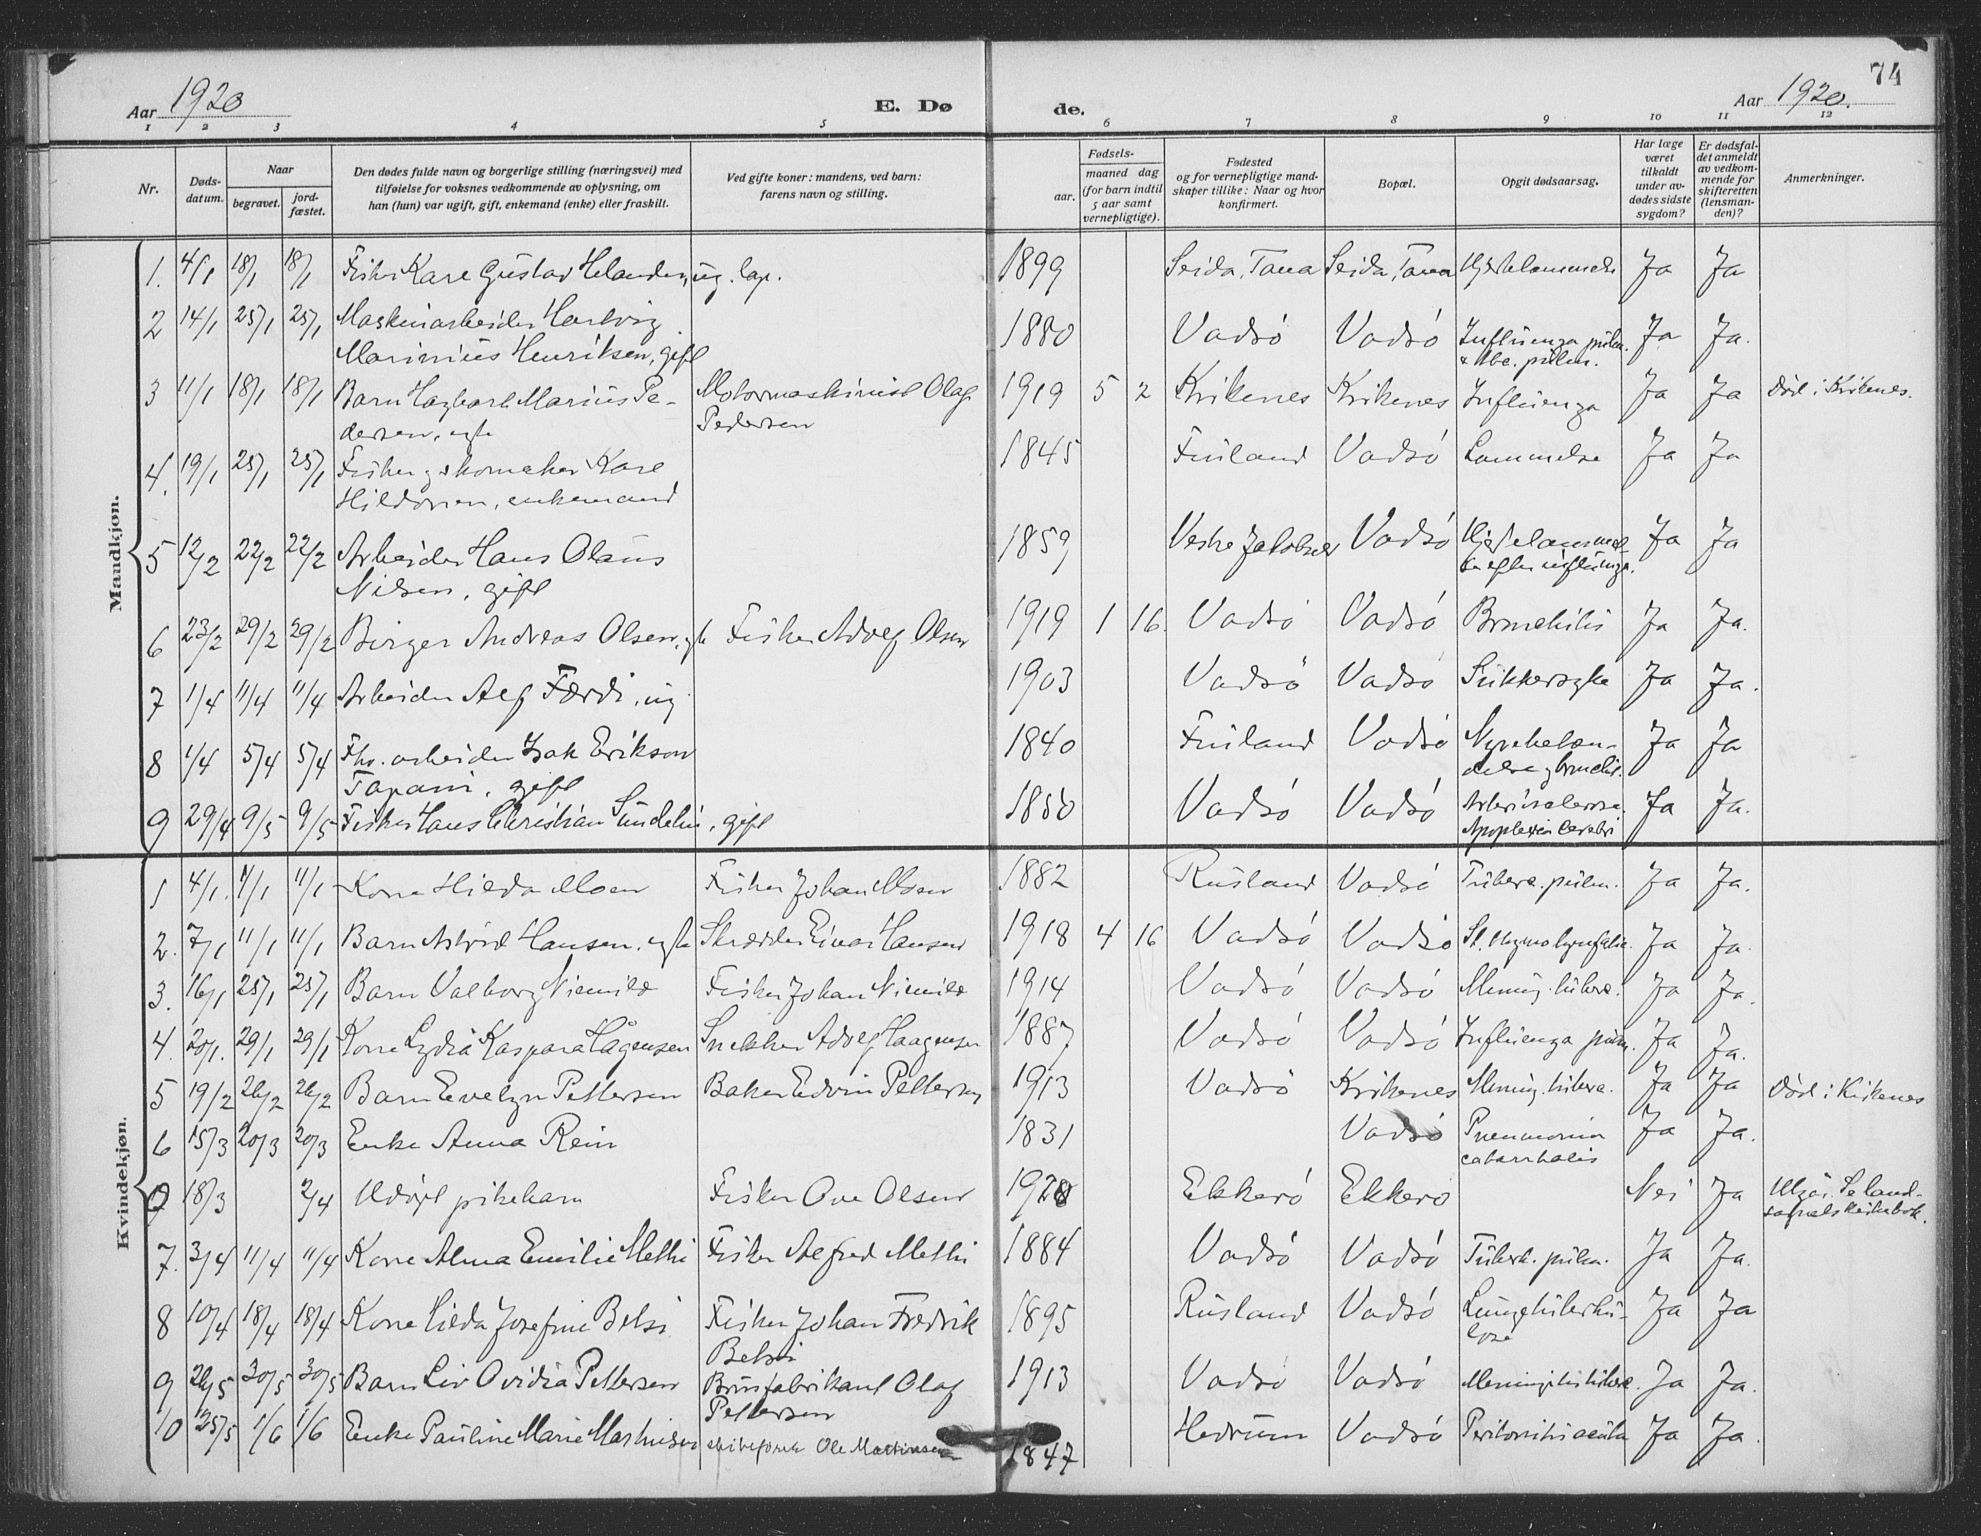 74
Aar 1920
E. Dø
de.
Aar 1920.
1 2 3 4 5 6 7 8 9 10 11 12
Nr.
Døds-
datum.
Naar
begravet.
jord-
fæstet.
Den dødes fulde navn og borgerlige stilling (næringsvei) med
tilføielse for voksnes vedkommende av oplysning, om
han (hun) var ugift, gift, enkemand (enke) eller fraskilt.
Ved gifte koner: mandens, ved barn:
farens navn og stilling.
Fødsels-
aar.
maaned dag
(for barn indtil
5 aar samt
vernepligtige).
Fødested
og for vernepligtige mand-
skaper tillike: Naar og hvor
konfirmert.
Bopæl.
Opgit dødsaarsag.
Har læge
været
tilkaldt
under av-
dødes sidste
sygdom?
Er dødsfal-
det anmeldt
av vedkom-
mende for
skifteretten
(lensman-
den)?
Anmerkninger.
Mandkjøn.
1. 4/1 18/1 18/1 Fisker Kare Gustav Helander, ug. lap. 1899 Seida, Tana Seida, Tana Hjertelammelse Ja Ja
2 14/1 25/1 25/1 Maskinarbeider Hartvig
Marinius Henriksen, gift 1880 Vadsö Vadsö Influenza pulm. Ja Ja.
& tbc. pulm.
3 11/1 18/1 18/1 Barn Hagbart Marius Pe- Motormaskinist Olaf 1919 5 2 Kirkenes Kirkenes Influenza Ja Ja Död i Kirkenes.
dersen, egte Pedersen
4. 19/1 25/1 25/1 Fisker og skomaker Kare 1845 Finland Vadsö Lammelse Ja Ja
Hildonen, enkemand
5 12/2 22/2 22/2 Arbeider Hans Olaus 1859 Vestre Jakobselv Vadsö Hjertelammel- Ja Ja
Nilsen, gift se efter influenza.
6 23/2 29/2 29/2 Birger Andreas Olsen, egte Fisker Adolf Olsen 1919 1 16. Vadsö Vadsö Bronchitis Ja Ja.
7 1/4 11/4 11/4 Arbeider Alf Færdi, ug 1903 Vadsö Vadsö Sukkersyke Ja Ja.
8 1/4 5/4 5/4 Fhv. arbeider Isak Erikson 1840 Finland Vadsö Nyrebetæn- Ja Ja
Tapani, gift delse og bronchit.
9 29/4 9/5 9/5 Fisker Hans Christian Sundelin, gift 1850 Vadsö Vadsö Arteriosclerose. Ja Ja.
Apoplexia Cerebri
Kvindekjøn.
1 4/1. 11/1 11/1 Kone Hilda Moen Fisker Johan Moen 1882 Rusland Vadsö Tuberc. pulm. Ja Ja.
2. 7/1 11/1 11/1 Barn Astrid Hansen, egte Skrædder Einar Hansen 1918 4 16 Vadsö Vadsö St. thymo lymfatic. Ja Ja.
3. 16/1 25/1 25/1 Barn Valborg Niemilæ Fisker Johan Niemilæ 1914 Vadsö Vadsö Mening. tuberc. Ja Ja.
4. 20/1. 29/1 29/1 Kone Lydia Kaspara Hågensen Snekker Adolf Haagensen 1887 Vadsö Vadsö Influenza pulm. Ja Ja.
5 19/2 26/2 26/2 Barn Evelyn Pettersen Baker Edvin Pettersen 1913 Vadsö Kirkenes Mening. tuberc. Ja Ja Död i Kirkenes
6 15/3 20/3 20/3 Enke Anna Rein 1831 Vadsö Pneumonia Ja Ja.
catarrhalis
0 18/3 2/4 Udöpt pikebarn Fisker Ove Olsen 1920 Ekkerö Ekkerö Nei Ja Utgår. Se land-
sognets kirkebok.
7. 3/4 11/4 11/4 Kone Alma Emilie Methi Fisker Alfred Methi 1884 Vadsö Vadsö Tuberk. pulm. Ja Ja.
8 10/4 18/4 18/4 Kone Hilda Josefine Betsi Fisker Johan Fredrik 1895 Rusland Vadsö Lungetuberku- Ja Ja
Betsi lose
9 26/5 30/5 30/5 Barn Liv Ovidia Pettersen Brusfabrikant Olaf 1913 Vadsö Vadsö Meningitis tuberc. Ja Ja.
Pettersen
10 25/5 1/6 1/6 Enke Pauline Marie Mathisen Ole Mathisen 1847 Hedrum Vadsö Peritonitis acuta Ja Ja.